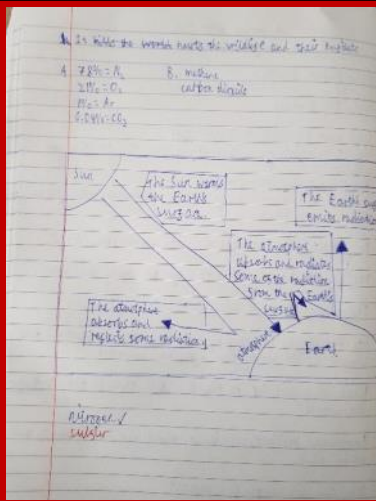 the world heats the and their
A. 78% = N₂
21% = O₂
1% = Ar
0.04% = CO₂
B. methane
carbon dioxide
Sun
The Sun warms
the Earth's
The Earth's
emits radiation
The atmosphere
absorbs and radiates
some of the radiation
from the Earth's
The atmosphere
absorbs and
reflects some radiation
atmosphere
Earth
nitrogen ✓
sulfur